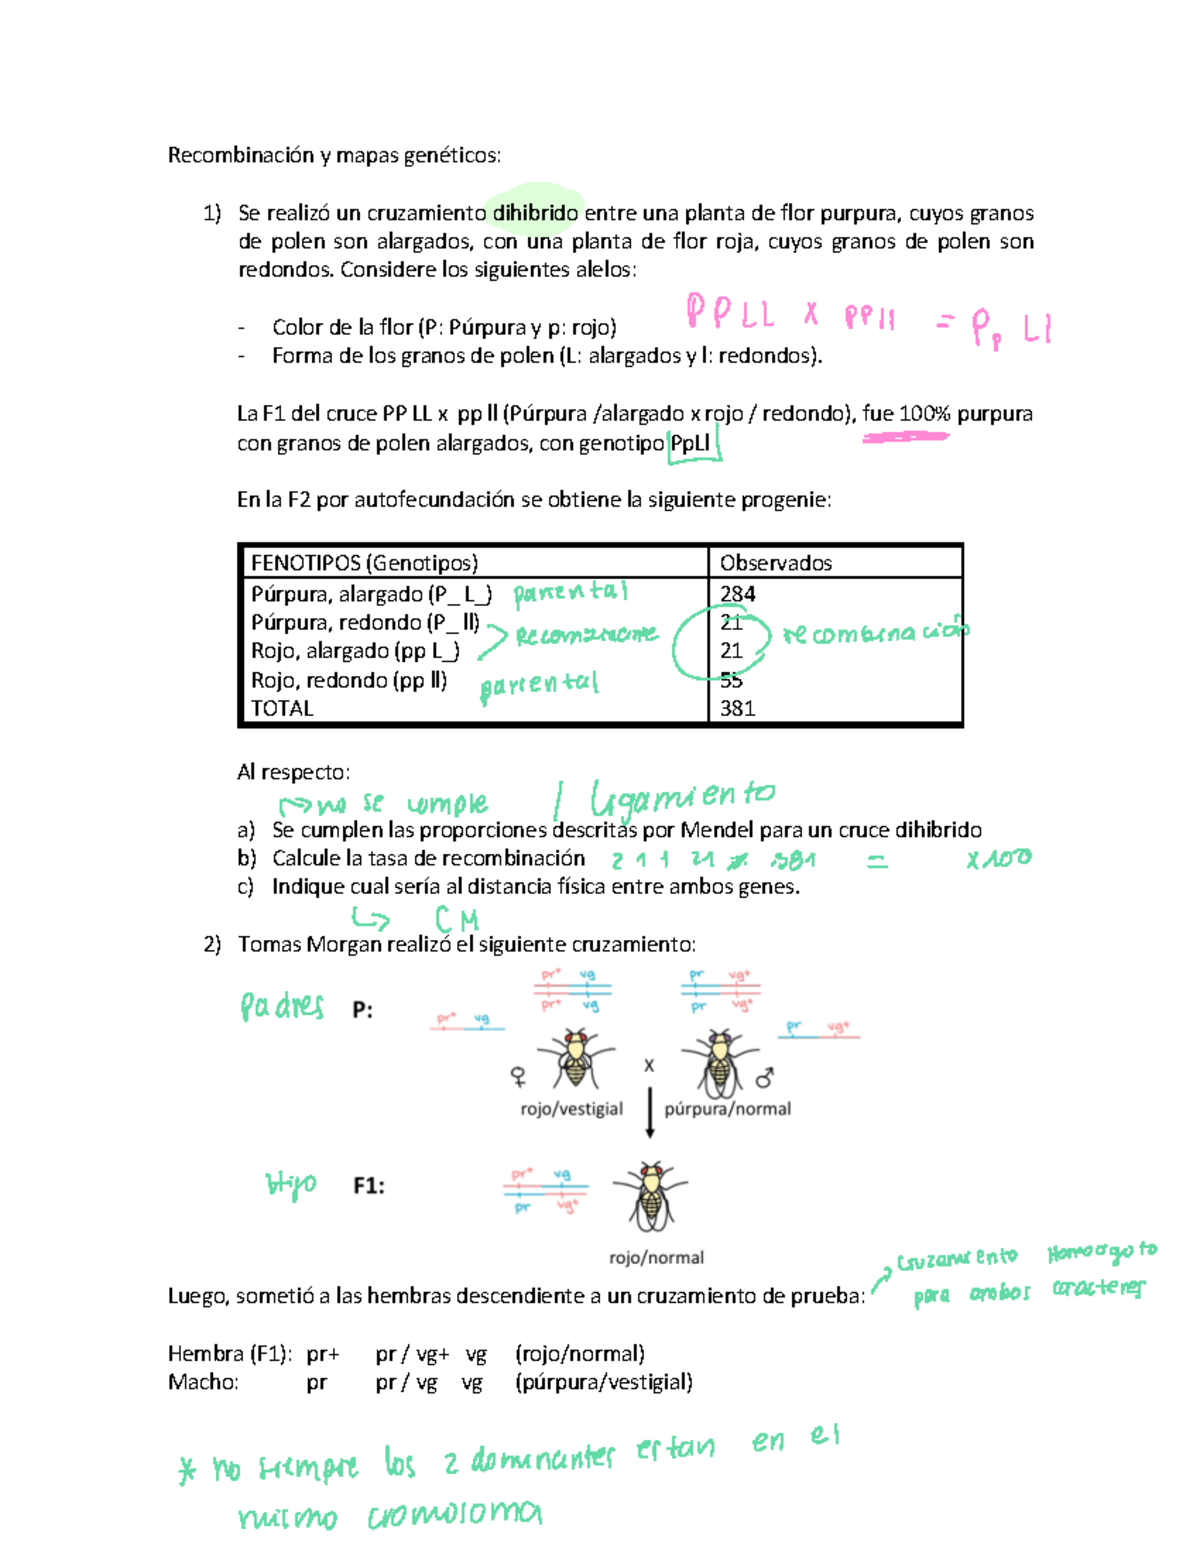 Recombinación y mapas genéticos:
1) Se realizó un cruzamiento dihibrido entre una planta de flor purpura, cuyos granos
de polen son alargados, con una planta de flor roja, cuyos granos de polen son
redondos. Considere los siguientes alelos:
- Color de la flor (P: Púrpura y p: rojo)
PPLL x ppll = Pp Ll
- Forma de los granos de polen (L: alargados y l: redondos).
La F1 del cruce PP LL x pp ll (Púrpura /alargado x rojo / redondo), fue 100% purpura
con granos de polen alargados, con genotipo PpLl
En la F2 por autofecundación se obtiene la siguiente progenie:
FENOTIPOS (Genotipos) Observados
Púrpura, alargado (P_ L_) parental 284
Púrpura, redondo (P_ ll) Recombinante 21 recombinación
Rojo, alargado (pp L_) 21
Rojo, redondo (pp ll) parental 55
TOTAL 381
Al respecto:
no se cumple / Ligamiento
a) Se cumplen las proporciones descritas por Mendel para un cruce dihibrido
b) Calcule la tasa de recombinación 21 + 21 381 = x100
c) Indique cual sería al distancia física entre ambos genes.
CM
2) Tomas Morgan realizó el siguiente cruzamiento:
pr+ vg pr vg+
Padres P: pr+ vg pr vg+
pr+ vg pr vg+
♀ x ♂
rojo/vestigial púrpura/normal
Hijo F1: pr+ vg
pr vg+
rojo/normal
Cruzamiento Homocigoto
Luego, sometió a las hembras descendiente a un cruzamiento de prueba: para ambos caracteres
Hembra (F1): pr+ pr / vg+ vg (rojo/normal)
Macho: pr pr / vg vg (púrpura/vestigial)
* no siempre los 2 dominantes estan en el
mismo cromosoma